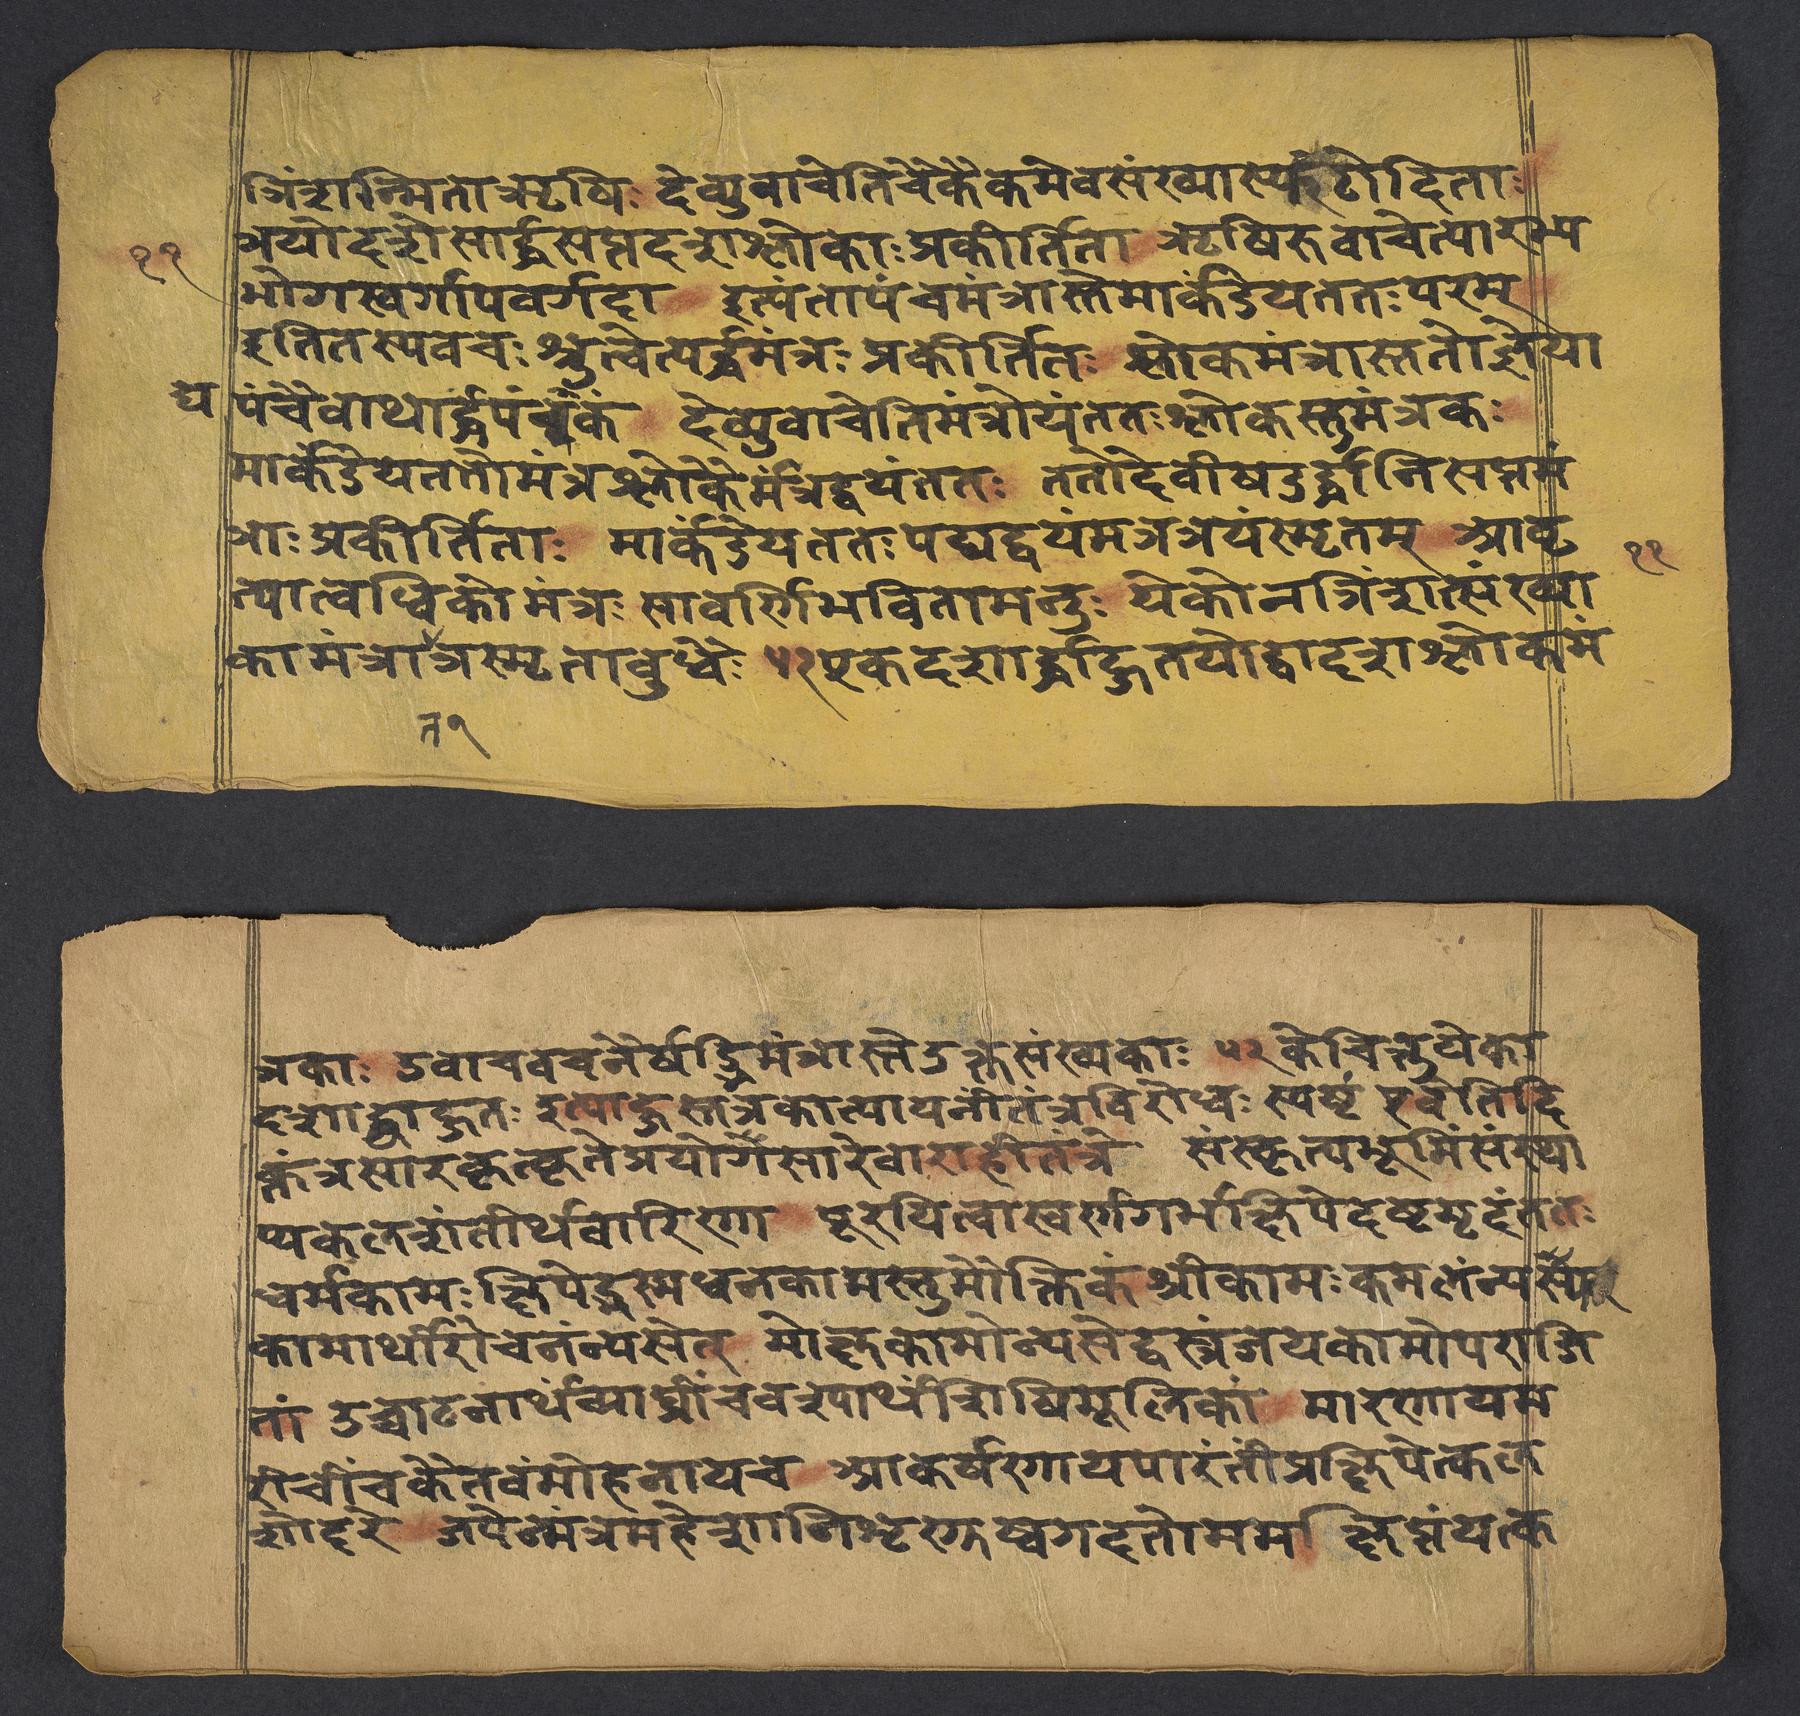 त्रिंशन्मिता ऋषिः देव्युवाचेतिचेकैकमेवसंख्यास्फुटोदिताः
त्रयोदशेसार्द्धसप्तदशश्लोकाःप्रकीर्तिता ऋषिरुवाचेत्यारभ्य
११
भोगस्वर्गापवर्गदा इत्यंतापंचमंत्रास्तेमार्कंडेयततःपरम्
इतितस्यवचःश्रुत्वेत्यर्द्धमंत्रःप्रकीर्तितः श्लोकमंत्रास्ततोज्ञेया
पंचैवाथार्द्धपंचकं देव्युवाचेतिमंत्रोयंततःश्लोकस्तुमंत्रकः
मार्कंडेयततोमंत्रश्लोकेमंत्रद्वयंततः ततोदेवीषडर्द्धानिसप्तमं
त्राःप्रकीर्तिताः मार्कंडेयततःपद्यद्वयंमत्रत्रयंस्मृतम् आवृ
११
त्यात्वधिकोमंत्रः सावर्णिभवितामनुः येकोनत्रिंशत्संख्या
कामंत्रात्रस्मृताबुधैः ५१ एकदशाद्ध्रद्धितयोद्वादशश्लोकमं
त१
त्रकाः उवाचवचनैर्षड्भिमंत्रास्तेउक्तसंख्यकाः ५२ केचित्तुयेका
दशाद्धाद्धुतः इत्याहुस्तत्रकात्यायनीतंत्रविरोधः स्पष्टं एवेतिदि
क्तंत्रसारकृत्कृतेप्रयोगसारेवाराहीतंत्रे संस्कृत्यभूमिंसंस्था
प्यकलशंतीर्थवारिणा पूरयित्वास्वर्णगर्भांक्षिपेदष्टमृदंततः
धर्मकामःक्षिपेद्भस्मधनकामस्तुमौक्तिकंश्रीकामःकमलंन्यसे
कामार्थीरोचनंन्यसेत् मोक्षकामोन्यसेद्वस्त्रंजयकामोपराजि
तां उच्चाटनार्थंव्याघ्रींचवश्यार्थंशिखिमूलिकां मारणायम
रीचींचकैतवंमोहनायच आकर्षणायपारंतींप्रक्षिपेत्कल
शोदरे जपेन्मंत्रमहेशानिशृणुष्वगदतोमम क्षिप्तंयत्क